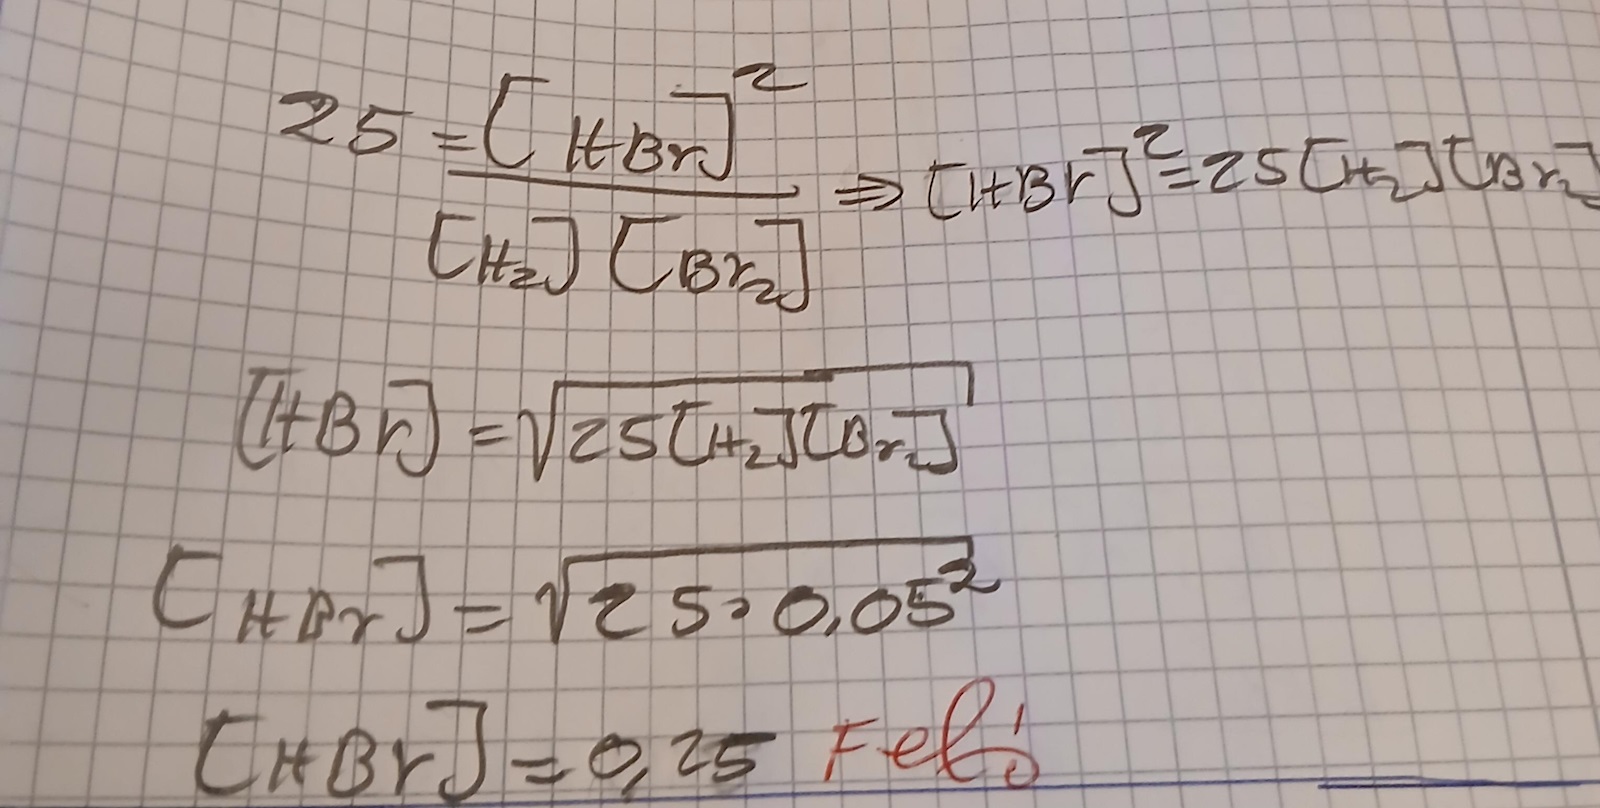 25 = [HBr]² / [H₂] [Br₂] ⇒ [HBr]² = 25[H₂][Br₂]
[HBr] = √25[H₂][Br₂]
[HBr] = √25·0,05²
[HBr] = 0,25 Fel!